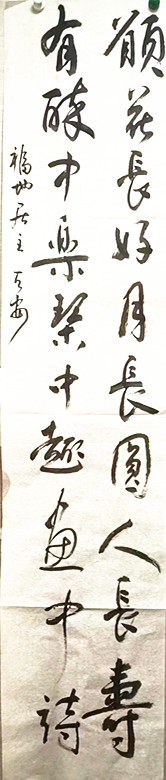 願花長好月長圓人長壽
有酔中樂琴中趣画中詩
福地居主天安